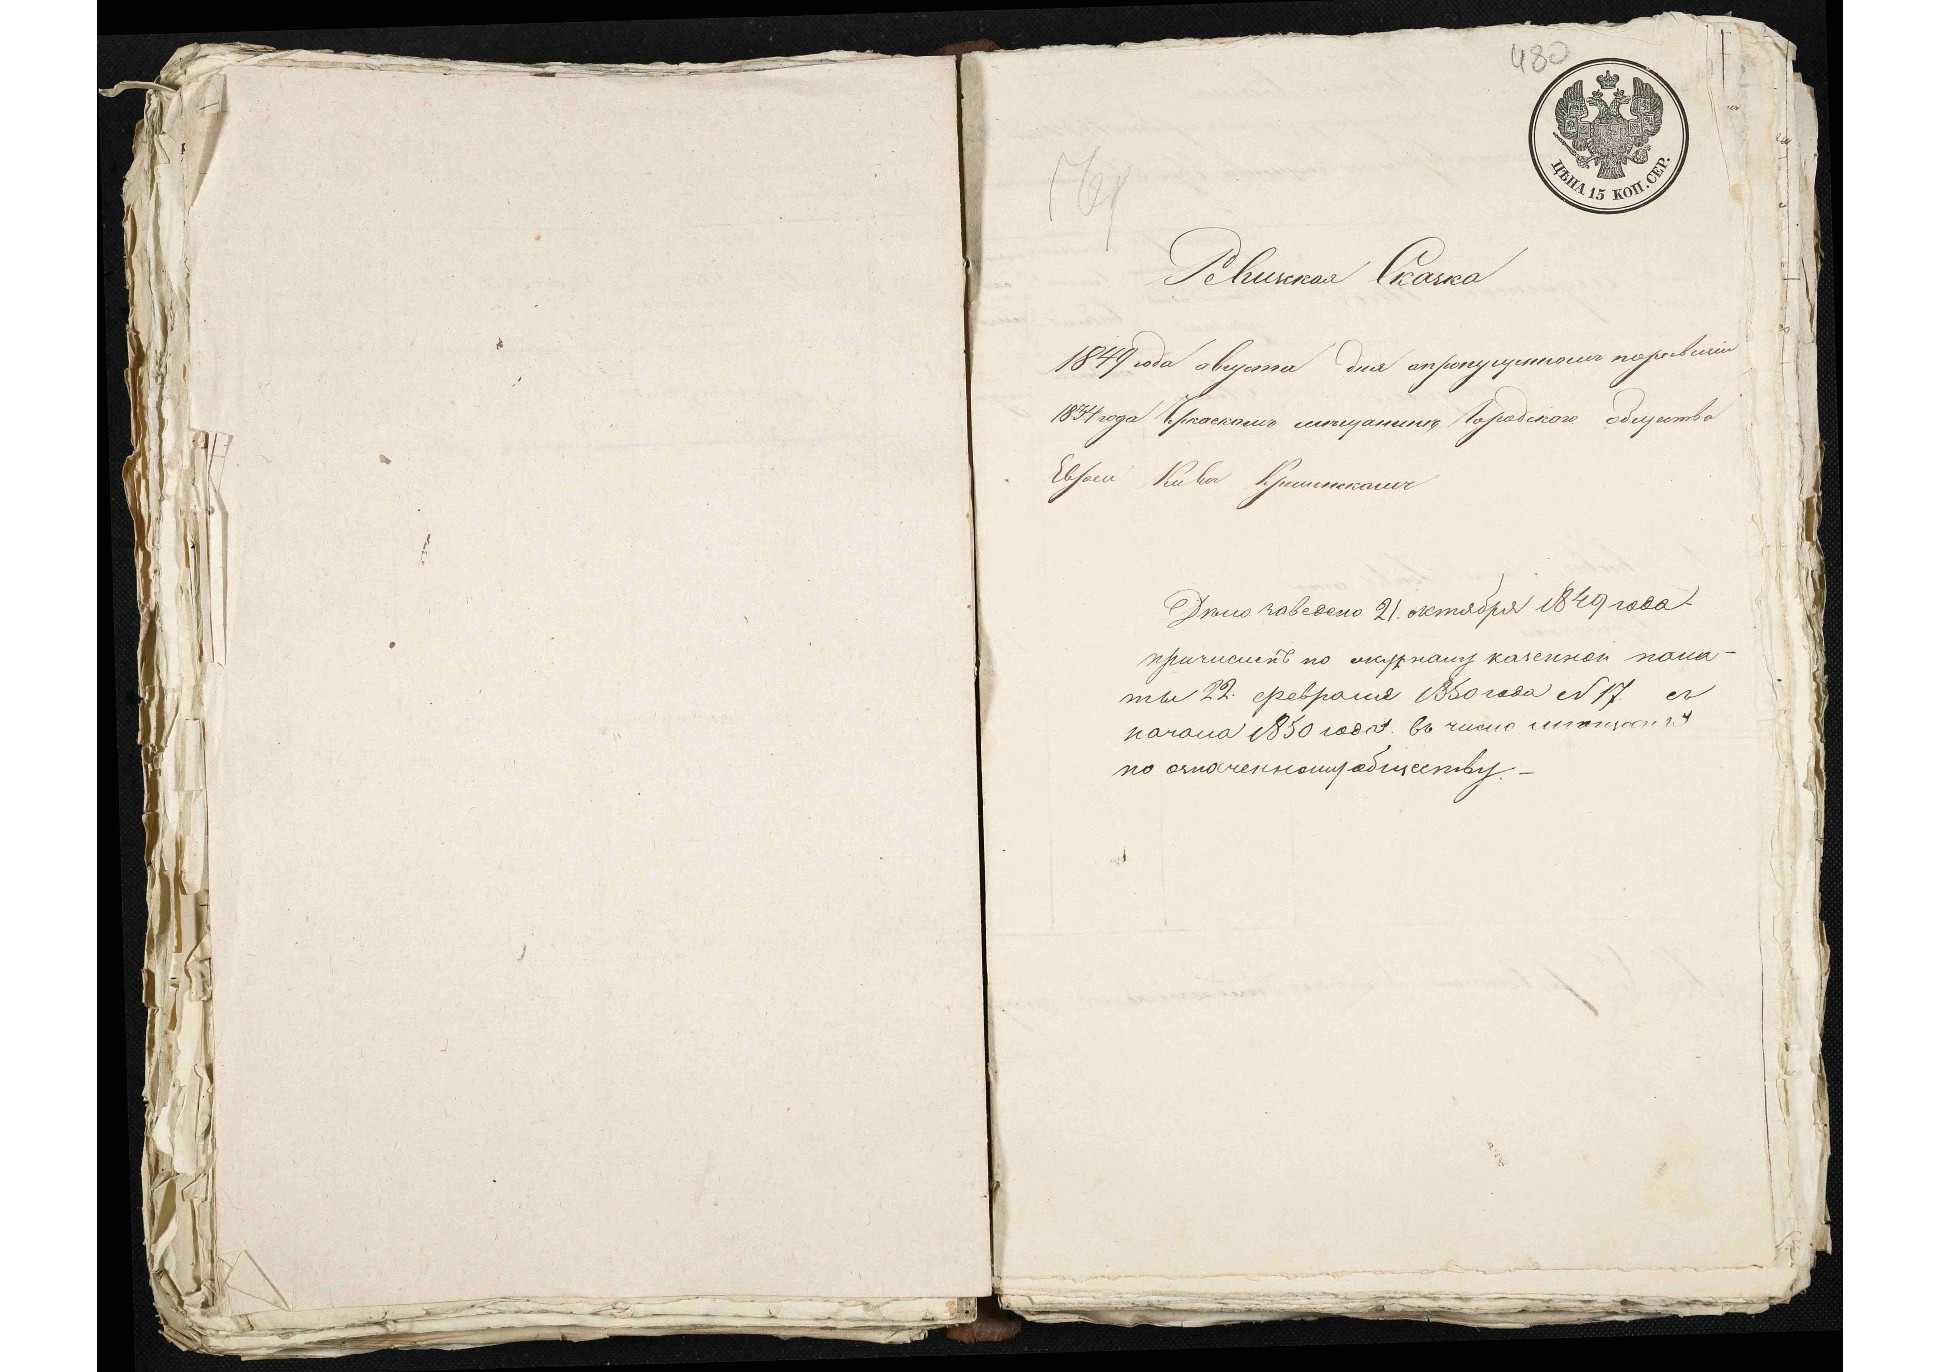 480
ЦѢНА 15 КОП. СЕР.
Ревижская Скаска
1849 года августа дня опропущенномъ поревизіи
1834 года Черкаскомъ мещанинѣ Городскаго общества
Евреи
Дѣло заведено 21. октября 1849 года
причисленъ по журналу казенной пала-
ты 22. февраля 1850 года № 17 съ
начала 1850 года. въ число мещанъ
по означенному обществу. –